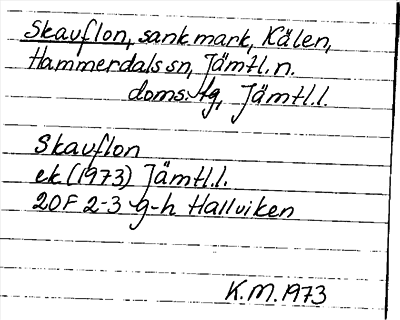 Skauflon, sank mark, Kälen,
Hammerdals sn, Jämtl. n.
doms: tg, Jämtl. l.
Skauflon
ek (1973) Jämtl. l.
20F 2-3 g-h Hallviken
K.M. 1973